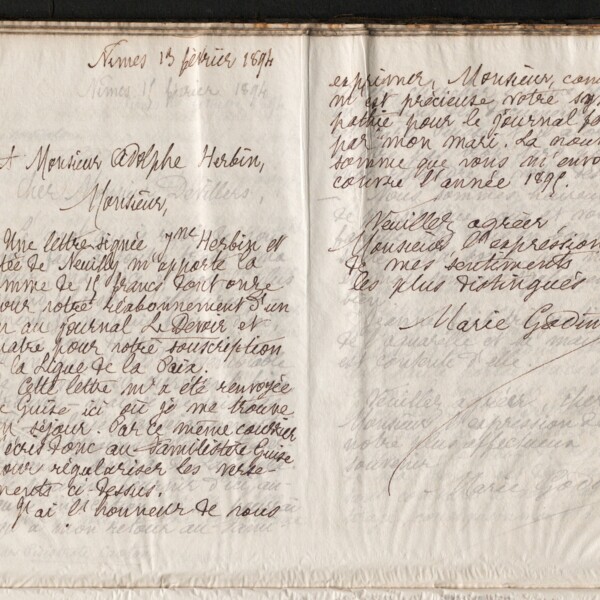 Nîmes 13 février 1894
A Monsieur Adolphe Herbin,
Monsieur,
Une lettre signée Mme Herbin et
tée de Neuilly m'apporte la
mme de 15 francs dont onze
our votre réabonnement d'un
n au journal Le Devoir et
uatre pour votre souscription
à la Ligue de la Paix.
Cette lettre m'a été renvoyée
e Guise ici où je me trouve
n séjour. Par ce même courrier
écris donc au Familistère Guise
our régulariser les verse-
ments ci-dessus.
J'ai l'honneur de vous
exprimer, Monsieur, com
m'est précieuse votre sym
pathie pour le journal fo
par mon mari. La nouv
somme que vous m'envo
couvre l'année 1895.
Veuillez agréer
Monsieur l'expression
de mes sentiments
les plus distingués
Marie Godin